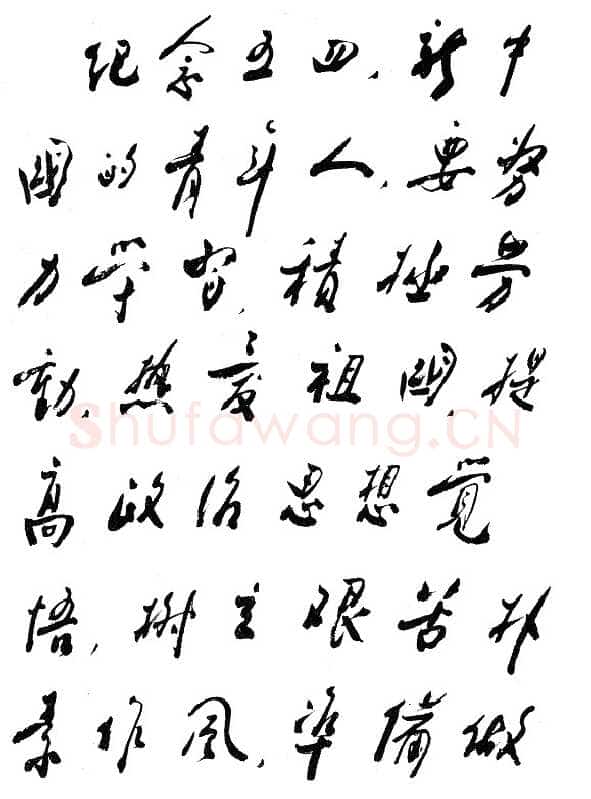 纪念五四,新中
國的青年人,要努
力学习,積极劳
動,热爱祖國,提
高政治思想覺
悟,樹立艰苦朴
素作风,準備做
Shufawang.CN